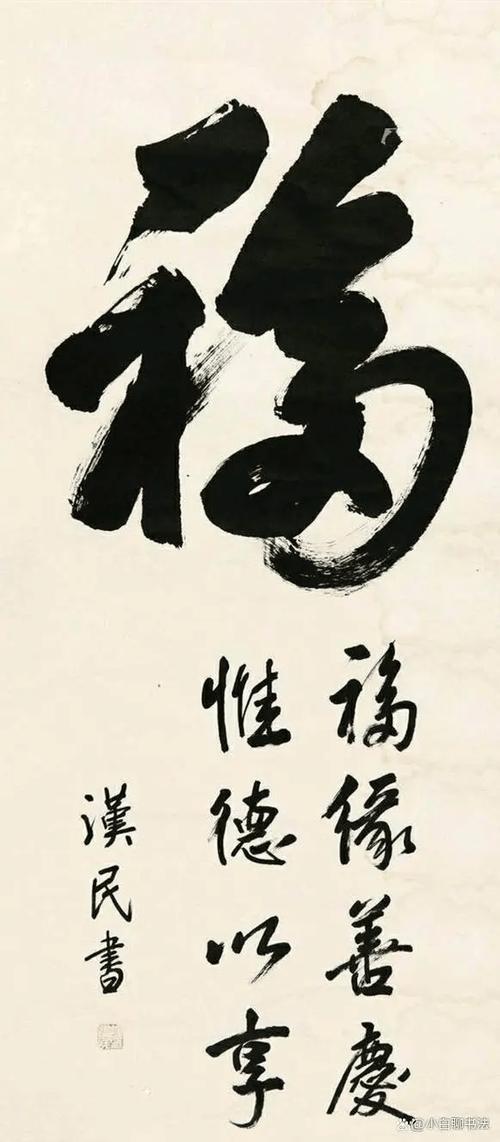 福
福緣善慶
惟德以享
漢民書
小白聊书法